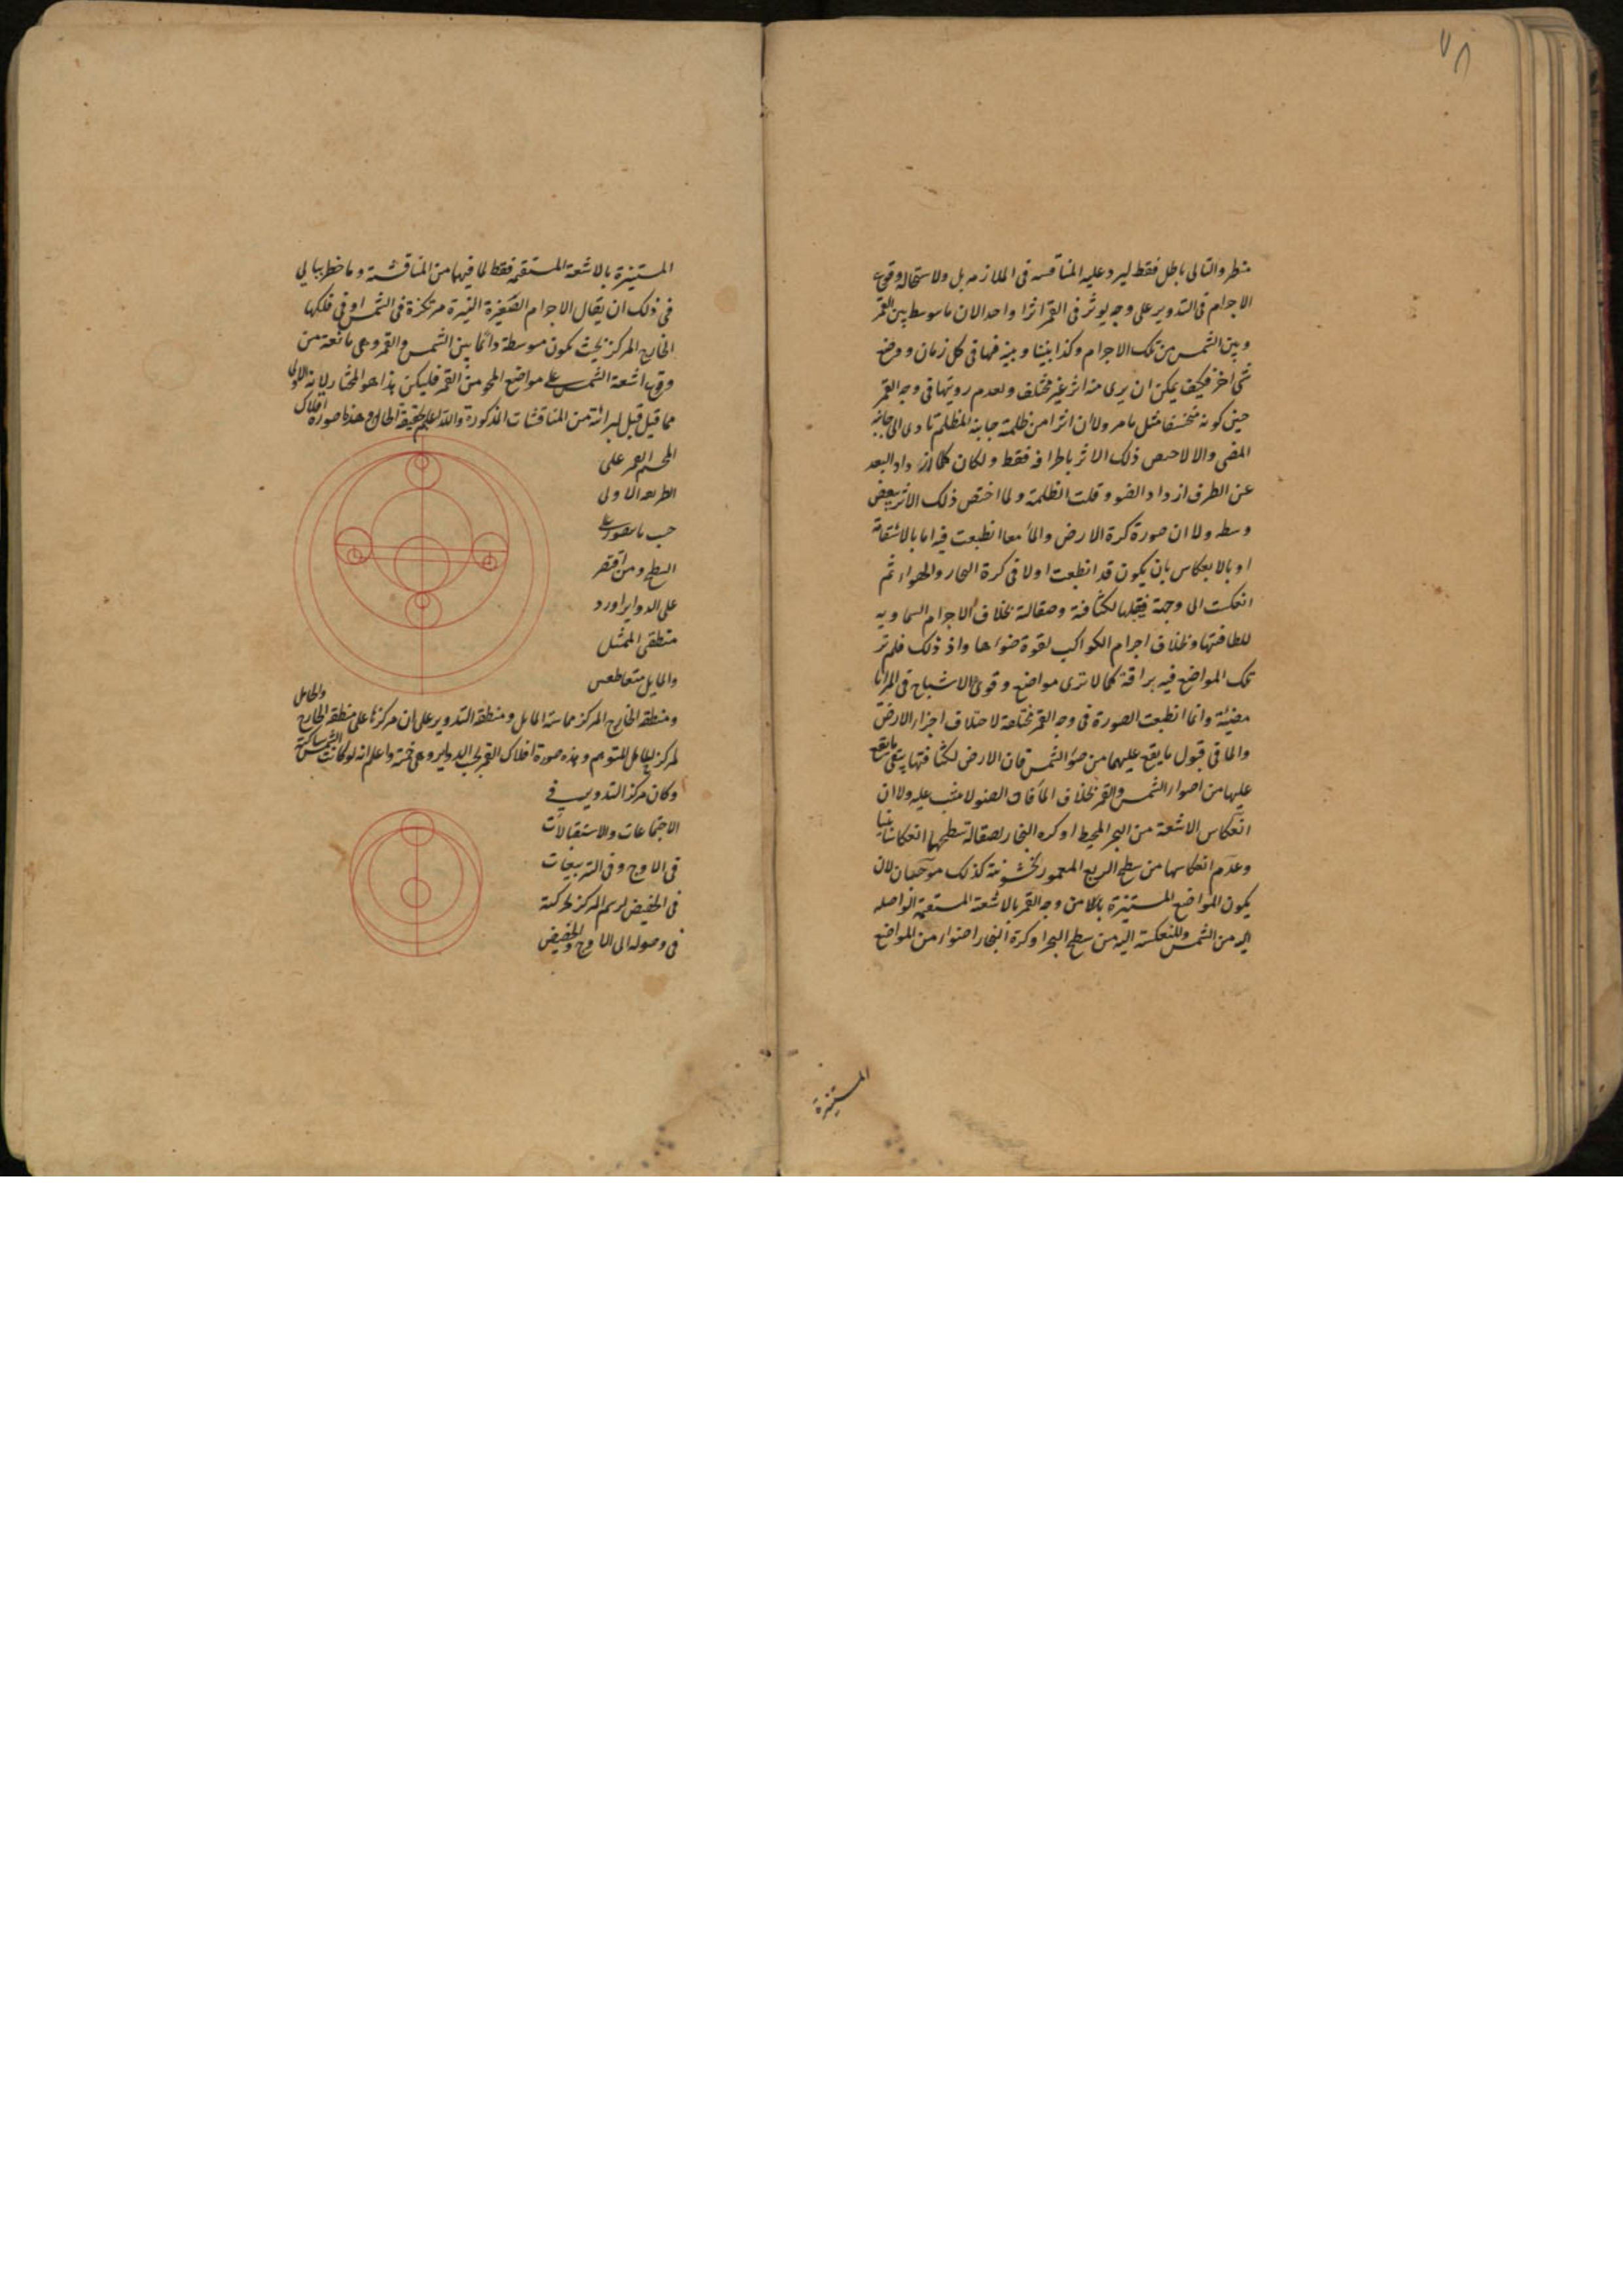 ٧٨
منظر والتالى باطل فقط ليرد عليه المناقسه فى الملازمه بل ولاستحالة وقوع
الاجرام فى التدوير على وجه يوثر فى القمر اثرا واحدا لان ما توسط بين القمر
وبين الشمس من تلك الاجرام وكذا بيننا وبينه فهما فى كل زمان ووضع
شى اخر فكيف يمكن ان يرى منه اثر غير مختلف ولعدم رويتها فى وجه القمر
حين كونه منخسفا مثل ما مر ولا ان اثرا من ظلمة جانبه المظلم تادى الى جانبه
المضى والا لاختص ذلك الاثر باطرافه فقط ولكان كلما ازداد البعد
عن الطرف ازداد الضو وقلت الظلمة ولما اختص ذلك الاثر ببعض
وسطه ولا ان صورة كرة الارض والماء معا انطبعت فيه اما بالاستقامة
او بالانعكاس بان يكون قد انطبعت اولا فى كرة البحار والهواء ثم
انعكست الى وجهه فيقبلها لكثافته وصقالته بخلاف الاجرام السماويه
للطافتها وبخلاف اجرام الكواكب لقوة ضواها واذ ذلك فلم تر
تلك المواضع فيه براقة كما لا ترى مواضع وقوع الاشباح فى المرايا
مضيئة وانما انطبعت الصورة فى وجه القمر مختلفة لاختلاف اجزاء الارض
والما فى قبول ما يقع عليهما من ضوء الشمس فان الارض لكثافتها ينعكس ما يقع
عليها من اضواء الشمس والقمر بخلاف الماء فان الضو لا يثبت عليه ولا ان
انعكاس الاشعة من البحر المحيط او كره البخار لصقالة سطحهما انعكاسا بينا
وعدم انعكاسها من سطح الربع المعمور لخشونته كذلك موجبان لان
يكون المواضع المستنيرة من وجه القمر بالاشعة المستقيمة الواصله
اليه من الشمس والمنعكسة اليه من سطح البحر او كرة البخار اضوا من المواضع
المستنيرة
المستنيرة بالاشعة المستقيمة فقط لما فيها من المناقشة وما خطر ببالى
فى ذلك ان يقال الاجرام الصغيرة النيرة مرتكزة فى الشمس او فى فلكها
الخارج المركز بحيث يكون متوسطة دائما بين الشمس والقمر وهى مانعة من
وقوع اشعة الشمس على مواضع المحو من القمر فليكن هذا هو المختار لانه الاولى
مما قيل قبل لبرائته من المناقشات المذكورة والله اعلم بحقيقة الحال وهذه صورة افلاك
المجسم القمر على
الطريقه الاولى
حسب ما يتصور على
السطح ومن اقتصر
على الدواير اورد
منطقى الممثل
والمايل متقاطعين
ومنطقه الخارج المركز مماسة المايل ومنطقه التدوير على ان مركزها على منطقه الخارج والحامل
المركز للمايل المتوهم وهذه صورة افلاك القمر بحسب الدواير وهى خمسة واعلم انه لو كانت الشمس ساكنة
وكان مركز التدوير فى
الاجتماعات والاستقبالات
فى الاوج وفى التربيعات
فى الحضيض لرسم المركز بحركته
فى وصوله الى الاوج والحضيض